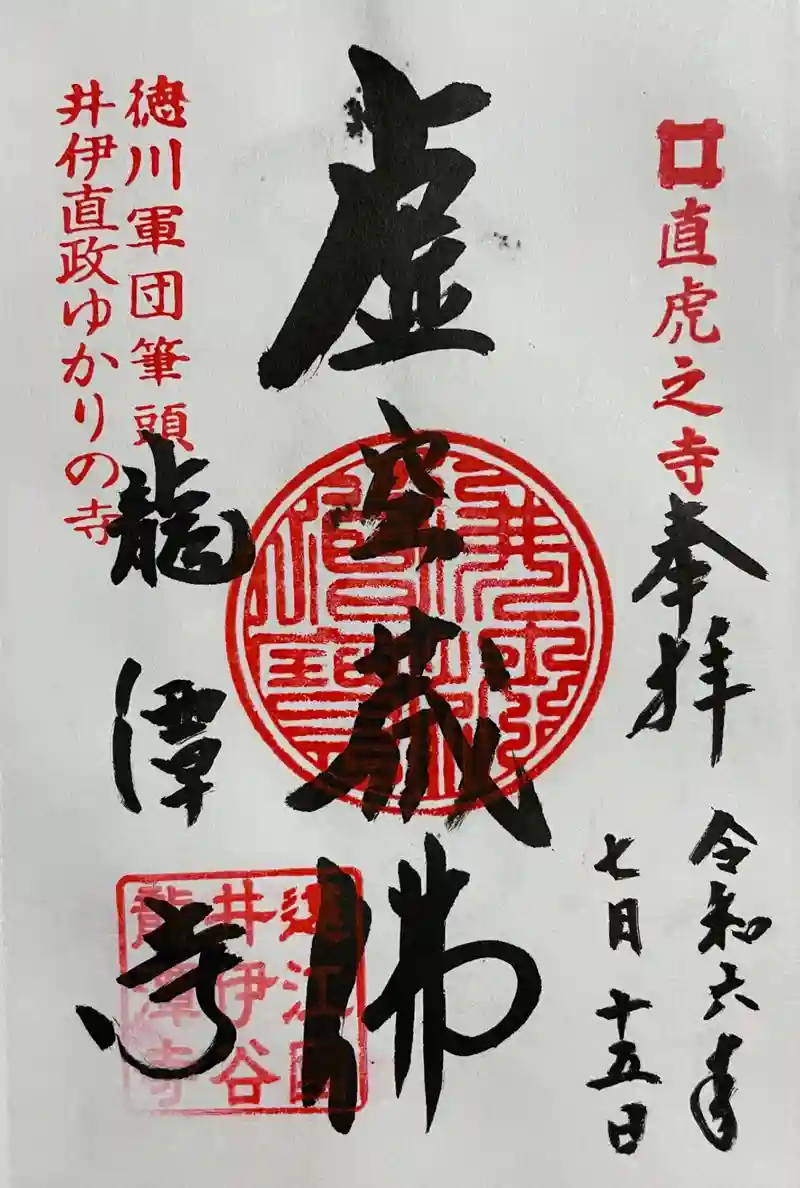 直虎之寺
奉拝
令和六年
七月十五日
虚空蔵佛
龍潭寺
徳川軍団筆頭
井伊直政ゆかりの寺
遠江国
井伊谷
龍潭寺